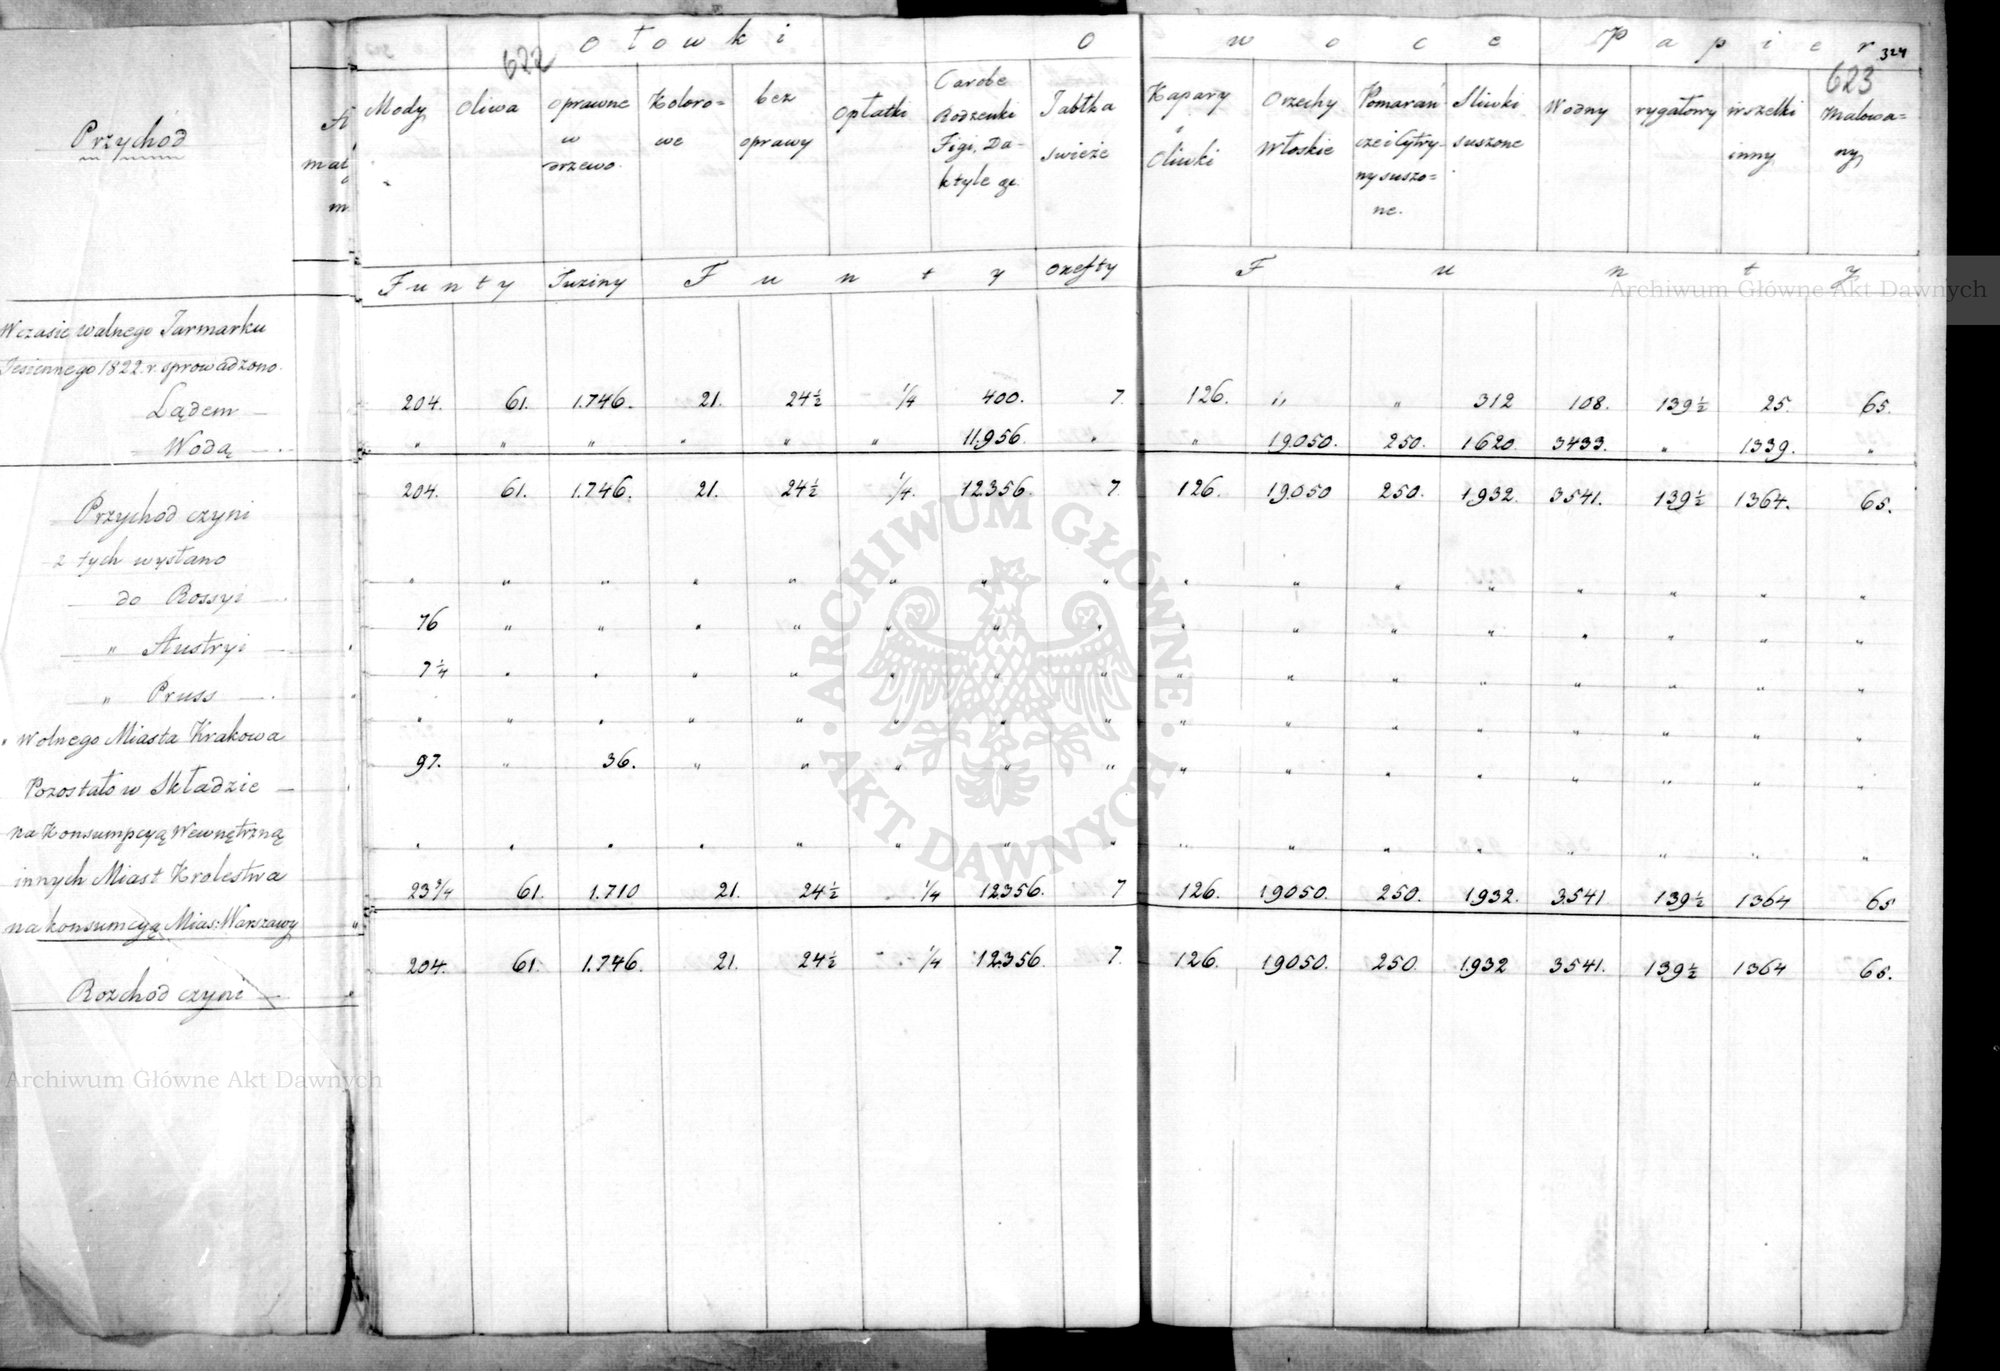 622 Ołowki O w o c e Papier 324
623
Przychód
Mody Oliwa oprawne w drzewo Koloro= we bez oprawy Opłatki Carobe Rodzenki Figi, Da- ktyle &c. Jabłka swieże Kapary i Oliwki Orzechy Włoskie Pomarań cze i Cytry- ny suszo= ne. Sliwki suszone Wodny rygałowy wszelki inny Malowa= ny
Funty Tuziny F u n t y Oxefty F u n t y
Wczasie walnego Jarmarku
Jesiennego 1822. r. sprowadzono.
Lądem 204. 61. 1.746. 21. 24½ ¼ 400. 7. 126. " " 312 108. 139½ 25. 65.
Wodą " " " " " " 11.956. " " 19.050. 250. 1620. 3433. " 1339. "
Przychód czyni 204. 61. 1.746. 21. 24½ ¼. 12.356. 7. 126. 19.050 250. 1.932. 3.541. 139½ 1364. 65.
z tych wysłano
do Rossyi " " " " " " " " " " " " " " " "
" Austryi 76 " " " " " " " " " " " " " " "
" Pruss 7¼ " " " " " " " " " " " " " " "
" Wolnego Miasta Krakowa " " " " " " " " " " " " " " " "
Pozostało w Składzie 97. " 36. " " " " " " " " " " " " "
na Konsumpcyą Wewnętrzną
innych Miast Krolestwa " " " " " " " " " " " " " " " "
na konsumcyą Mias: Warszawy 23¾ 61. 1.710 21. 24½ ¼ 12.356. 7 126. 19.050. 250. 1.932. 3.541 139½ 1364 65
Rozchód czyni 204. 61. 1.746. 21. 24½ ¼ 12.356. 7. 126. 19.050. 250. 1.932 3.541. 139½ 1364 65.
Archiwum Główne Akt Dawnych
ARCHIWUM GŁÓWNE AKT DAWNYCH
Archiwum Główne Akt Dawnych